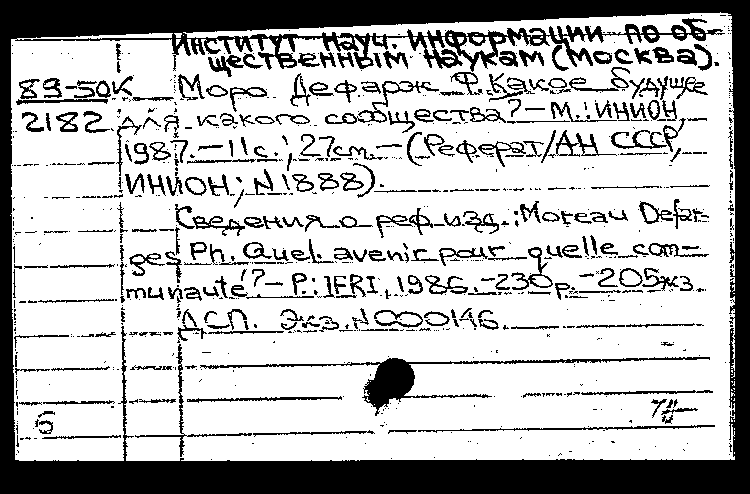 Институт науч. информации по об-
щественным наукам (Москва).
89-50К Моро Дефарж Ф. Какое будущее
2182 для какого сообщества? – М.: ИНИОН,
1987. – 11 с.; 27 см. – (Реферат/АН СССР,
ИНИОН; N 1888).
Сведения о реф. изд.: Moreau Defar-
ges Ph. Quel avenir pour quelle com-
munauté? – P.: IFRI, 1986. – 230 p. – 205экз.
ДСП. Экз. N 000146.
б